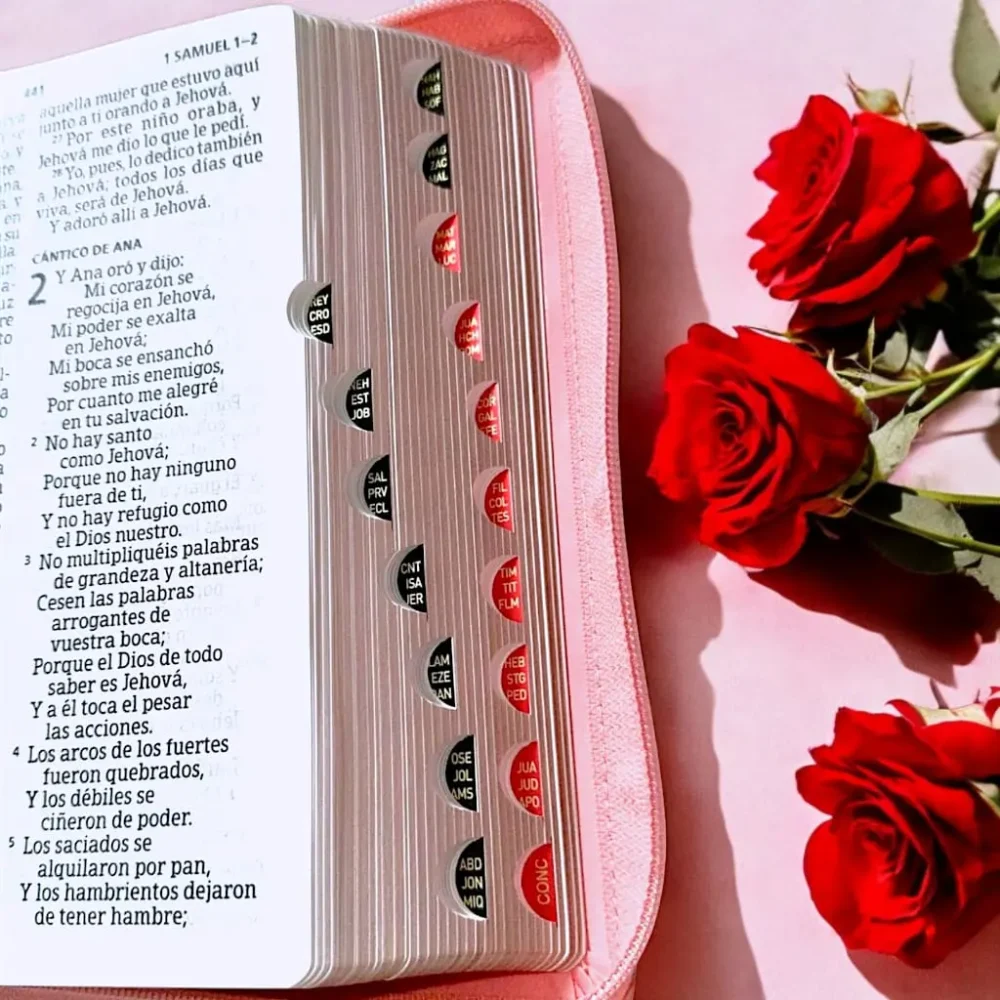 441
1 SAMUEL 1–2
aquella mujer que estuvo aquí
junto a ti orando a Jehová.
27 Por este niño oraba, y
Jehová me dio lo que le pedí.
28 Yo, pues, lo dedico también
a Jehová; todos los días que
viva, será de Jehová.
Y adoró allí a Jehová.
CÁNTICO DE ANA
2 Y Ana oró y dijo:
Mi corazón se
regocija en Jehová,
Mi poder se exalta
en Jehová;
Mi boca se ensanchó
sobre mis enemigos,
Por cuanto me alegré
en tu salvación.
2 No hay santo
como Jehová;
Porque no hay ninguno
fuera de ti,
Y no hay refugio como
el Dios nuestro.
3 No multipliquéis palabras
de grandeza y altanería;
Cesen las palabras
arrogantes de
vuestra boca;
Porque el Dios de todo
saber es Jehová,
Y a él toca el pesar
las acciones.
4 Los arcos de los fuertes
fueron quebrados,
Y los débiles se
ciñeron de poder.
5 Los saciados se
alquilaron por pan,
Y los hambrientos dejaron
de tener hambre;
REY
CRO
ESD
NEH
EST
JOB
SAL
PRV
ECL
CNT
ISA
JER
LAM
EZE
DAN
OSE
JOL
AMS
ABD
JON
MIQ
NAH
HAB
SOF
HAG
ZAC
MAL
MAT
MAR
LUC
JUA
HCH
ROM
COR
GAL
EFE
FIL
COL
TES
TIM
TIT
FLM
HEB
STG
PED
JUA
JUD
APO
CONC